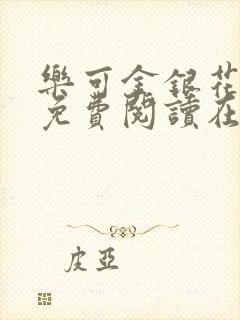 樂可金銀花
免費閱讀在
皮亞